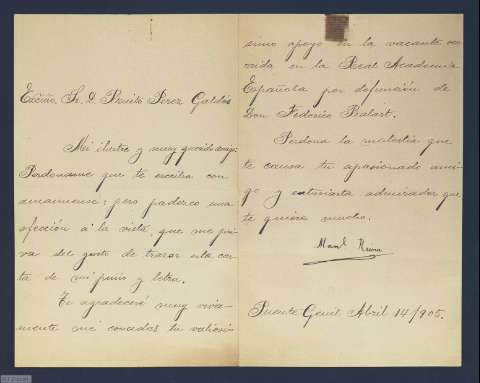 Excmo. Sr. D. Benito Perez Galdós
Mi ilustre y muy querido amigo:
Perdoname que te escriba con
amanuense; pero padezco una
afección a la vista, que me pri-
va del gusto de trazar esta car-
ta de mi puño y letra.
Te agradeceré muy viva-
mente me concedas tu valiosi-
simo apoyo en la vacante ocu-
rrida en la Real Academia
Española por defunción de
Don Federico Balart.
Perdona la molestia que
te causa tu apasionado ami-
go y entusiasta admirador que
te quiere mucho.
Manl. Reina
Puente Genil Abril 14/905.